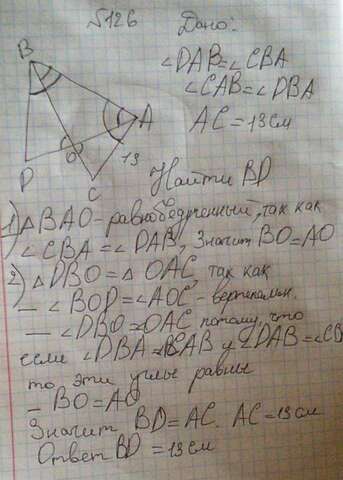 №126
Дано:
∠DAB=∠CBA
∠CAB=∠DBA
AC=13см
Найти BD
B
A
O
13
D
C
1) △BAO-равнобедренный, так как
∠CBA=∠DAB, Значит BO=AO
2) △DBO=△OAC, так как
— ∠BOD=∠AOC-вертикальн.
— ∠DBO=OAC потому, что
если ∠DBA=CAB и ∠DAB=∠CB
то эти углы равны
— BO=AO
Значит BD=AC. AC=13см
Ответ BD=13см